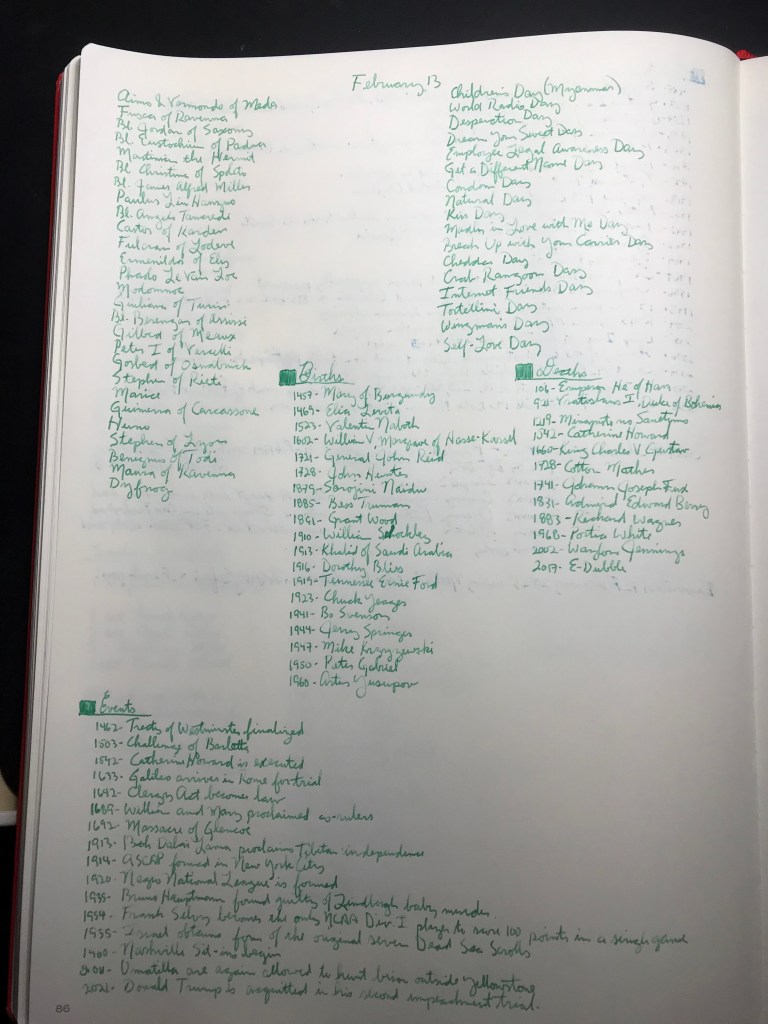 February 13
Aimo & Vermondo of Meda
Fusca of Ravenna
Bl. Jordan of Saxony
Bl. Eustochium of Padua
Martinian the Hermit
Bl. Christine of Spoleto
Bl. James Alfred Miller
Paulus Liu Hanzuo
Bl. Angelo Tancredi
Castor of Karden
Fulcran of Lodeve
Ermenilda of Ely
Phado Le Van Loc
Modomnoc
Giuliana of Turin
Bl. Berengar of Assisi
Gilbert of Meaux
Peter I of Vercelli
Gosbert of Osnabrück
Stephen of Rieti
Maurice
Guimera of Carcassone
Huno
Stephen of Lyon
Benignus of Todi
Maura of Ravenna
Dyfnog
Children's Day (Myanmar)
World Radio Day
Desperation Day
Dream Your Sweet Day
Employee Legal Awareness Day
Get a Different Name Day
Condom Day
Natural Day
Kiss Day
Madly in Love with Me Day
Break Up with Your Carrier Day
Cheddar Day
Crab Rangoon Day
Internet Friends Day
Tortellini Day
Wingman's Day
Self-Love Day
Births
1457- Mary of Burgundy
1469- Elia Levita
1523- Valentin Naboth
1602- William V, Margrave of Hesse-Kassel
1721- General John Reid
1728- John Hunter
1879- Sarojini Naidu
1885- Bess Truman
1891- Grant Wood
1910- William Shockley
1913- Khalid of Saudi Arabia
1916- Dorothy Bliss
1919- Tennessee Ernie Ford
1923- Chuck Yeager
1941- Bo Svenson
1944- Jerry Springer
1947- Mike Krzyzewski
1950- Peter Gabriel
1960- Artur Yusupov
Deaths
106- Emperor He of Han
921- Vratislaus I, Duke of Bohemia
1219- Minamoto no Sanetomo
1542- Catherine Howard
1660- King Charles V Gustav
1728- Cotton Mather
1741- Johann Joseph Fux
1831- Edward Berry
1883- Richard Wagner
1968- Portia White
2002- Waylon Jennings
2017- E-Dubble
Events
1462- Treaty of Westminster finalized
1503- Challenge of Barletta
1542- Catherine Howard is executed
1633- Galileo arrives in Rome for trial
1642- Clergy Act becomes law
1689- William and Mary proclaimed co-rulers
1692- Massacre of Glencoe
1913- Dalai Lama proclaims Tibetan independence
1914- ASCAP formed in New York City
1920- Negro National League is formed
1935- Bruno Hauptmann found guilty of Lindbergh baby murder.
1954- Frank Selvy becomes the only NCAA Div. I player to score 100 points in a single game
1955- Israel obtains four of the original seven Dead Sea Scrolls
1960- Nashville Sit-ins begin
Umatilla are again allowed to hunt bison outside Yellowstone
2021- Donald Trump is acquitted in his second impeachment trial.
86